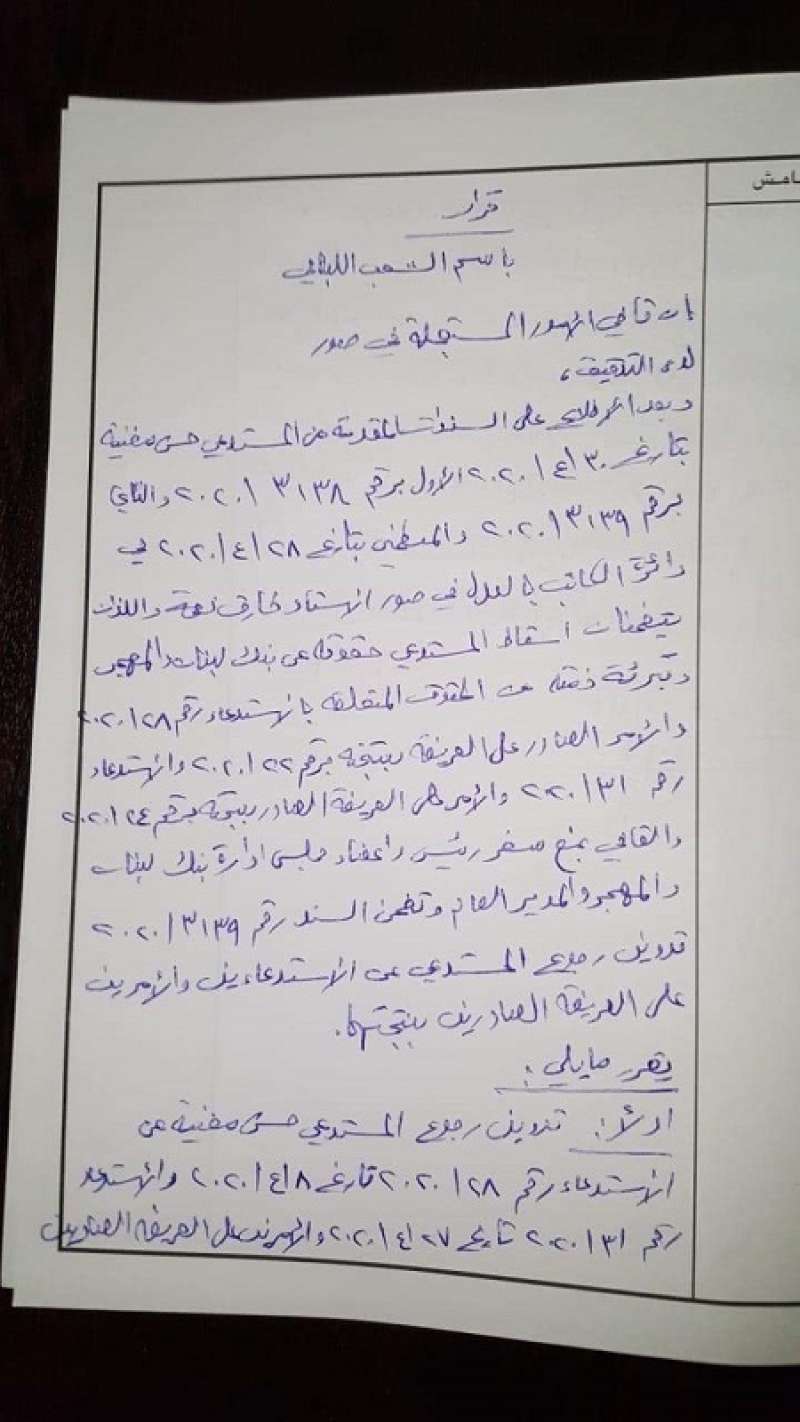 هامش
قرار
باسم الشعب اللبناني
ان قاضي الامور المستعجلة في صور
لدى التدقيق،
وبعد الاطلاع على السندات المقدمة من المستدعي حسن مغنية
بتاريخ ٣٠/٤/٢٠٢٠ الاول برقم ٣١٣٨/٢٠٢٠ والثاني
برقم ٣١٣٩/٢٠٢٠ والمنظمين بتاريخ ٢٨/٤/٢٠٢٠ في
دائرة الكاتب بالعدل في صور الاستاذ طارق نعمة واللذان
يتضمنان اسقاط المستدعي حقوقه عن بنك لبنان والمهجر
وتبرئة ذمته من الحقوق المتعلقة بالاستدعاء رقم ٢٨/٢٠٢٠
والأمر الصادر على العريضة بنتيجته برقم ٢٢/٢٠٢٠ والاستدعاء
رقم ٣١/٢٠٢٠ والأمر على العريضة الصادر بنتيجته برقم ٢٤/٢٠٢٠
والقاضي بمنع سفر رئيس واعضاء مجلس ادارة بنك لبنان
والمهجر والمدير العام وتضمن السند رقم ٣١٣٩/٢٠٢٠
تدوين رجوع المستدعي عن الاستدعاءين والأمرين
على العريضة الصادرين بنتيجتهما.
يقرر مايلي:
اولاً: تدوين رجوع المستدعي حسن مغنية عن
الاستدعاء رقم ٢٨/٢٠٢٠ تاريخ ٨/٤/٢٠٢٠ والاستدعاء
رقم ٣١/٢٠٢٠ تاريخ ٢٧/٤/٢٠٢٠ والأمرين على العريضة الصادرين